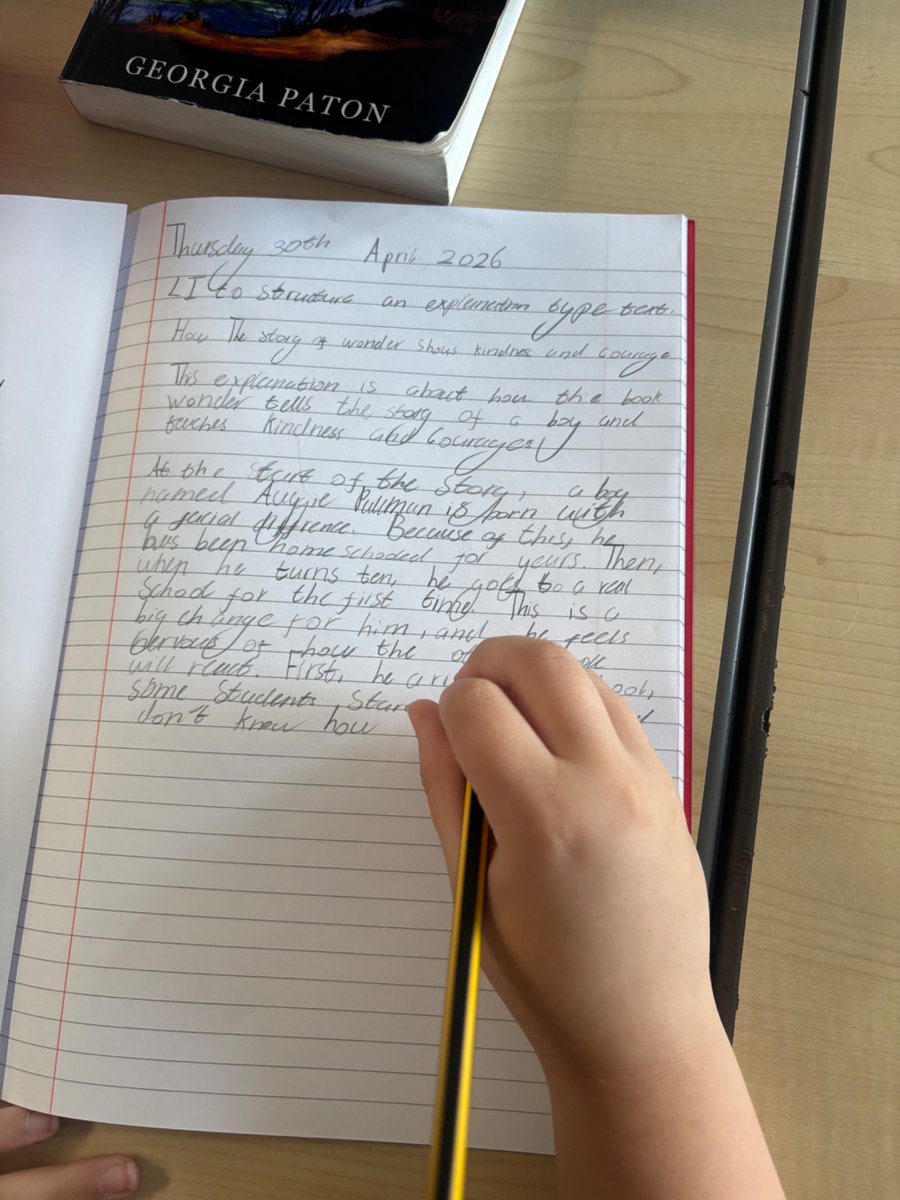 GEORGIA PATON
Thursday 30th April 2026
LI to structure an explanation type text.
How The story of wonder shows kindness and courage
This explanation is about how the book
wonder tells the story of a boy and
teaches kindness and courages
At the start of the story, a boy
named Auggie Pullman is born with
a facial diffrence. Because of this, he
has been homeschooled for years. Then,
when he turns ten, he goes to a real
School for the first time. This is a
big change for him, and he feels
nervous of how the
will react. First, he
some Students
don't know how